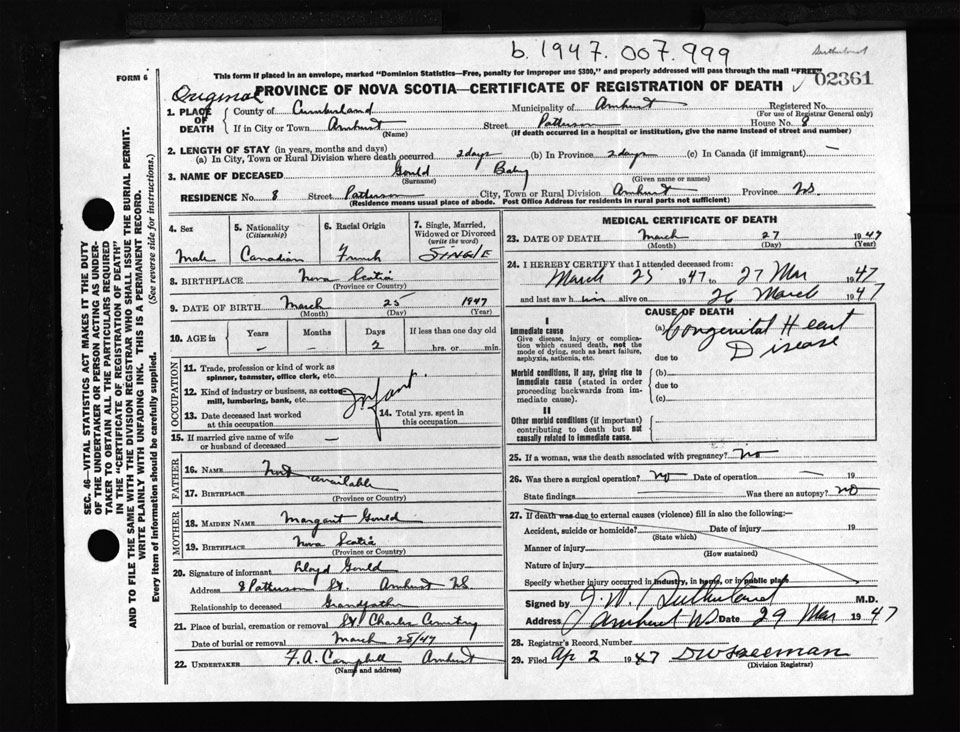 b. 1947. 007. 999
Sutherland
FORM 6
This form if placed in an envelope, marked "Dominion Statistics—Free, penalty for improper use $300," and properly addressed will pass through the mail "FREE"
02361
Original
PROVINCE OF NOVA SCOTIA—CERTIFICATE OF REGISTRATION OF DEATH
1. PLACE OF DEATH
County of Cumberland Municipality of Amherst Registered No.
(For use of Registrar General only)
If in City or Town Amherst Street Patterson House No. 8
(Name) (If death occurred in a hospital or institution, give the name instead of street and number)
2. LENGTH OF STAY (in years, months and days)
(a) In City, Town or Rural Division where death occurred 2 days (b) In Province 2 days (c) In Canada (if immigrant) —
3. NAME OF DECEASED Gould Baby
(Surname) (Given name or names)
RESIDENCE No. 8 Street Patterson City, Town or Rural Division Amherst Province NS.
(Residence means usual place of abode. Post Office Address for residents in rural parts not sufficient)
4. Sex Male
5. Nationality (Citizenship) Canadian
6. Racial Origin French
7. Single, Married, Widowed or Divorced (write the word) SINGLE
8. BIRTHPLACE Nova Scotia
(Province or Country)
9. DATE OF BIRTH March 25 1947
(Month) (Day) (Year)
10. AGE in Years — Months — Days 2 If less than one day old hrs. or min.
OCCUPATION
11. Trade, profession or kind of work as spinner, teamster, office clerk, etc.
12. Kind of industry or business, as cotton mill, lumbering, bank, etc.
Infant
13. Date deceased last worked at this occupation
14. Total yrs. spent in this occupation
15. If married give name of wife or husband of deceased —
FATHER
16. NAME Not available
17. BIRTHPLACE
(Province or Country)
MOTHER
18. MAIDEN NAME Margaret Gould
19. BIRTHPLACE Nova Scotia
(Province or Country)
20. Signature of informant Lloyd Gould
Address 8 Patterson St. Amherst NS
Relationship to deceased Grandfather
21. Place of burial, cremation or removal St Charles Cemetery
Date of burial or removal March 28/47
22. UNDERTAKER F. A. Campbell Amherst
(Name and address)
MEDICAL CERTIFICATE OF DEATH
23. DATE OF DEATH March 27 1947
(Month) (Day) (Year)
24. I HEREBY CERTIFY that I attended deceased from:
March 25 1947 to 27 Mar 1947
and last saw him alive on 26 March 1947
CAUSE OF DEATH
I
Immediate cause
Give disease, injury or complication which caused death, not the mode of dying, such as heart failure, asphyxia, asthenia, etc.
(a) Congenital Heart Disease
due to
Morbid conditions, if any, giving rise to Immediate cause (stated in order proceeding backwards from immediate cause).
(b)
due to
(c)
II
Other morbid conditions (if important) contributing to death but not causally related to immediate cause.
25. If a woman, was the death associated with pregnancy? No
26. Was there a surgical operation? No Date of operation — 19
State findings Was there an autopsy? No
27. If death was due to external causes (violence) fill in also the following:—
Accident, suicide or homicide? Date of injury 19
(State which)
Manner of injury
(How sustained)
Nature of injury
Specify whether injury occurred in industry, in home, or in public place
Signed by J. W. Sutherland M.D.
Address Amherst NS Date 29 Mar 1947
28. Registrar's Record Number
29. Filed Apr 2 1947
(Division Registrar)
SEC. 46—VITAL STATISTICS ACT MAKES IT THE DUTY
OF THE UNDERTAKER OR PERSON ACTING AS UNDERTAKER TO OBTAIN ALL THE PARTICULARS REQUIRED
IN THE "CERTIFICATE OF REGISTRATION OF DEATH"
AND TO FILE THE SAME WITH THE DIVISION REGISTRAR WHO SHALL ISSUE THE BURIAL PERMIT.
WRITE PLAINLY WITH UNFADING INK. THIS IS A PERMANENT RECORD.
Every item of information should be carefully supplied. (See reverse side for instructions.)